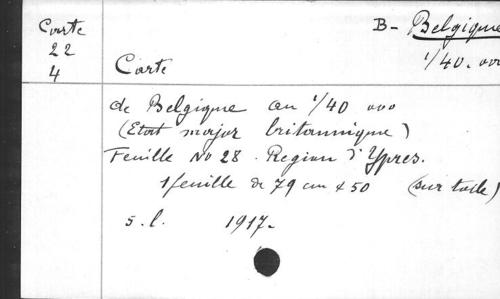 Carte
22
4
B- Belgique
1/40.000
Carte
de Belgique au 1/40 000
(Etat major britannique)
Feuille No 28. Region d'Ypres.
1 feuille de 79 cm x 50 (sur toile)
s.l. 1917-